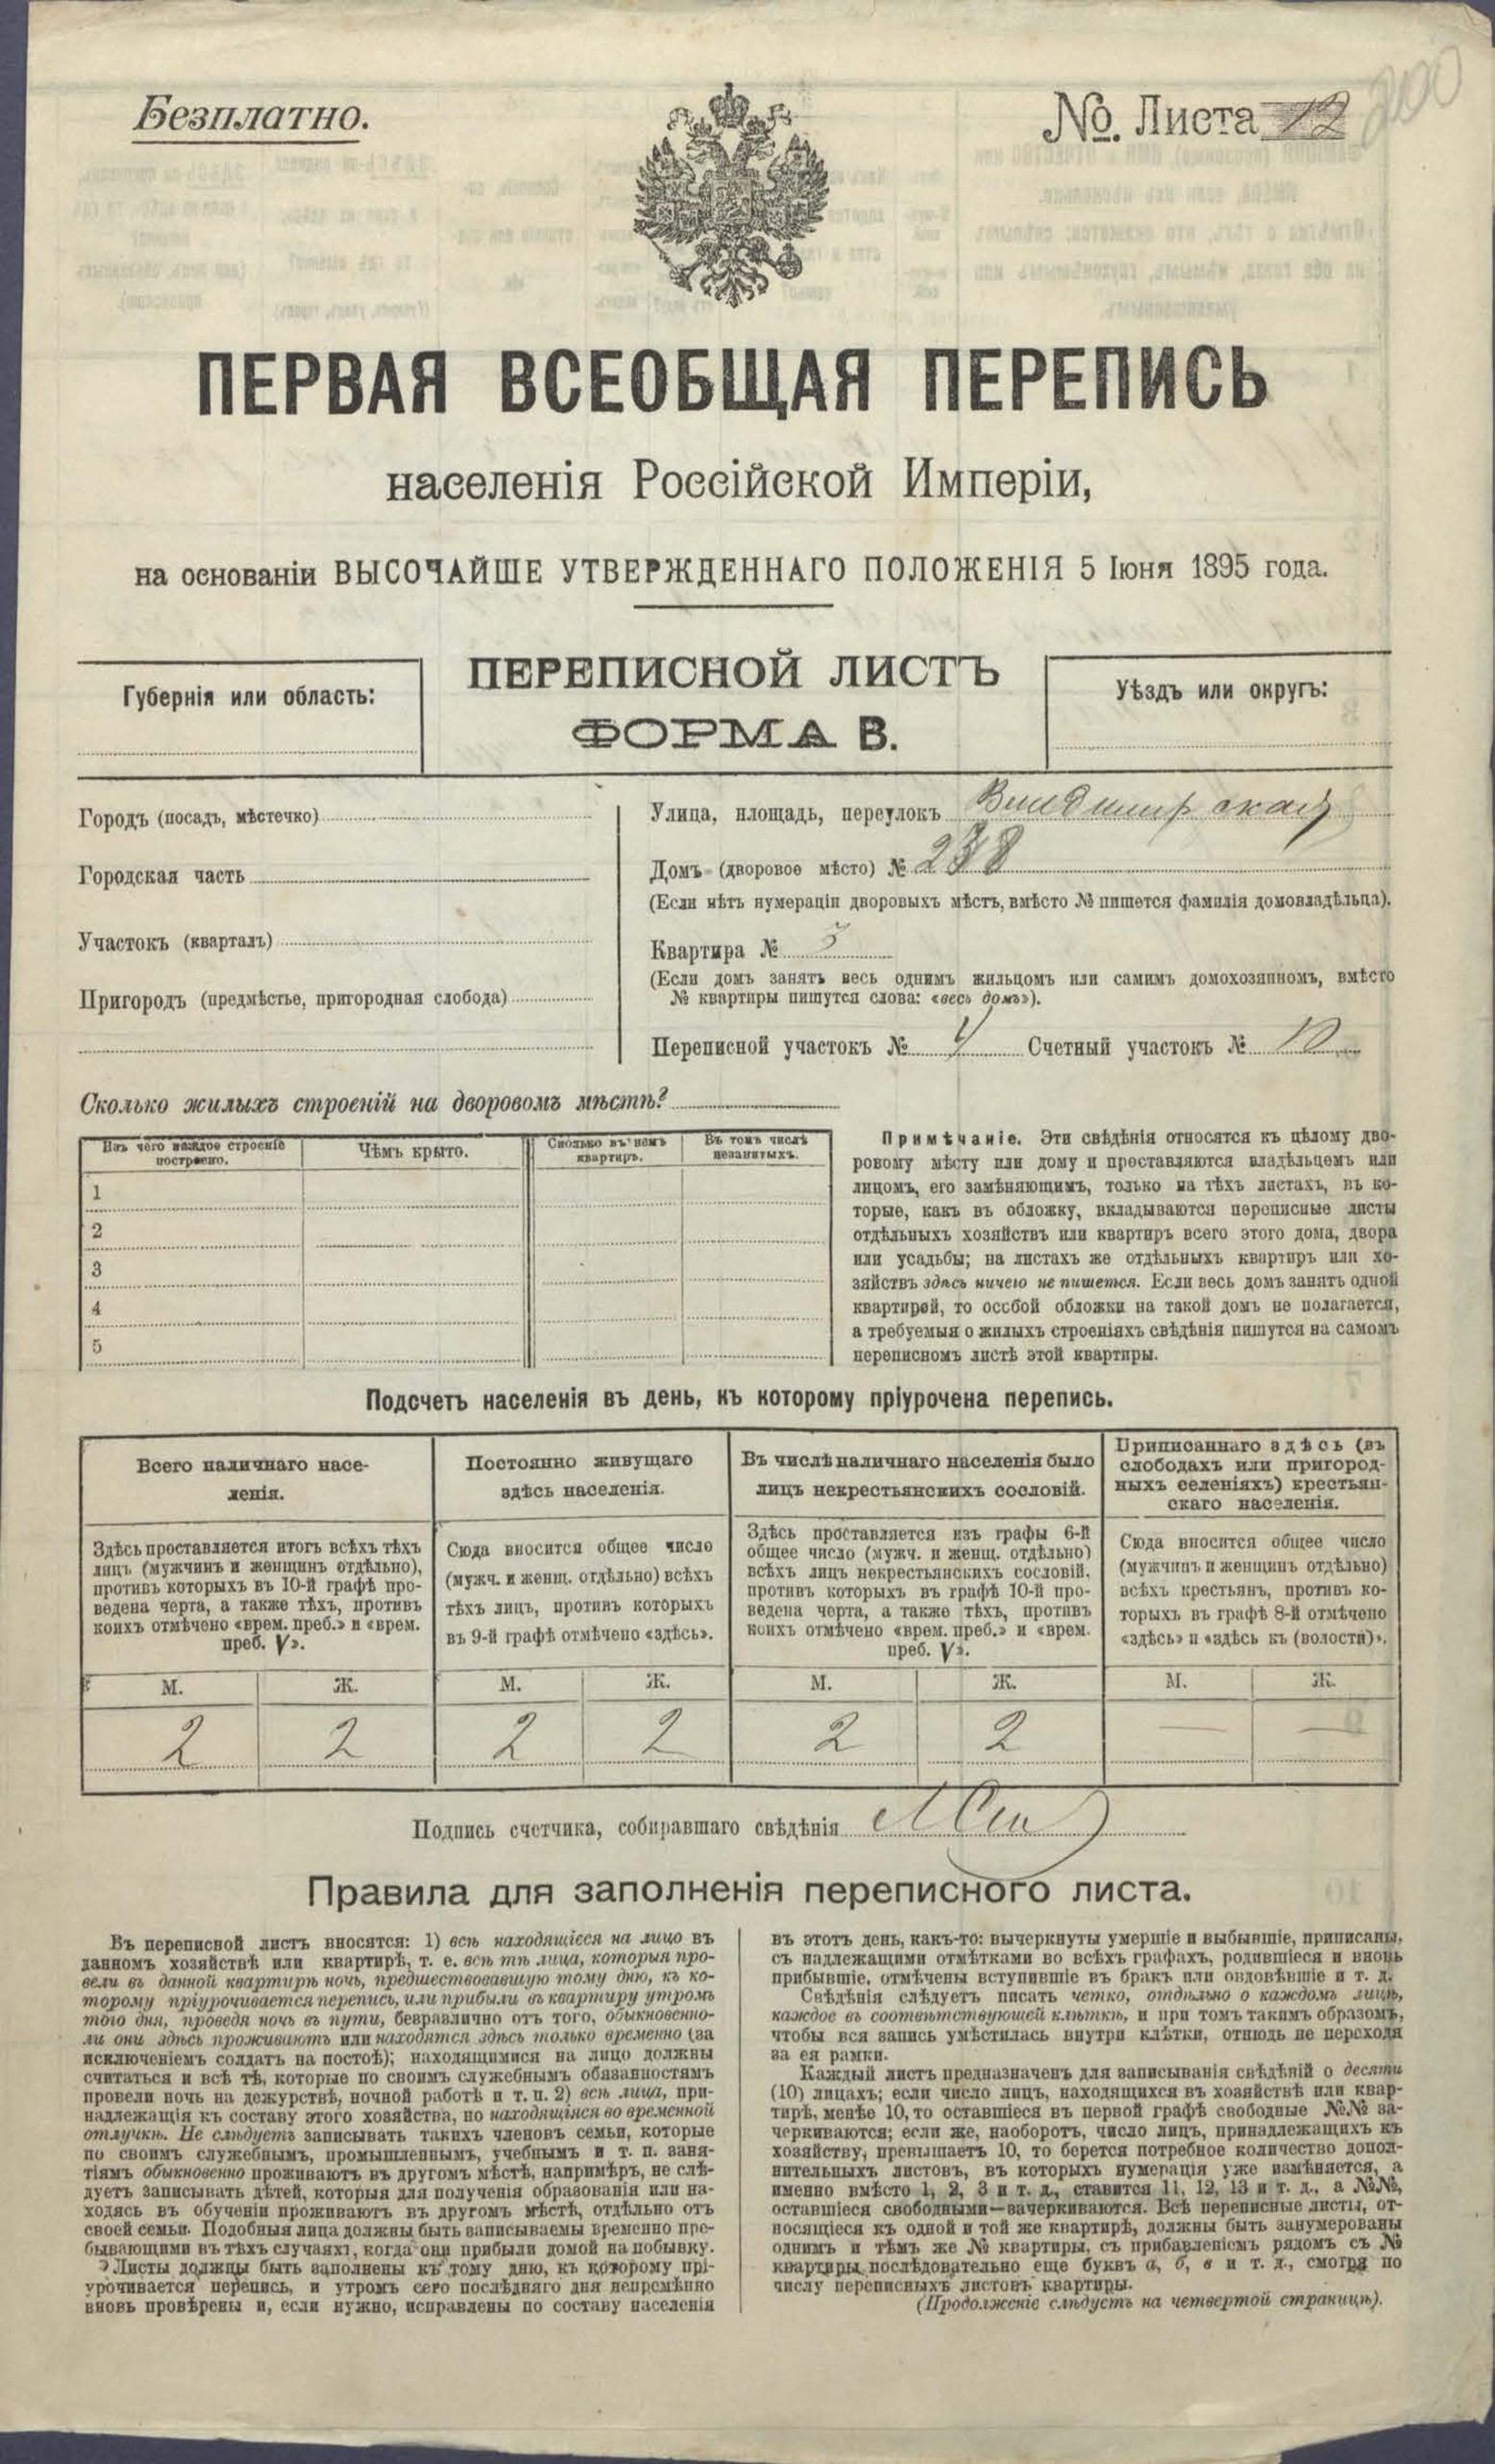 Безплатно.
№. Листа 12
200
ПЕРВАЯ ВСЕОБЩАЯ ПЕРЕПИСЬ
населенія Россійской Имперіи,
на основаніи ВЫСОЧАЙШЕ УТВЕРЖДЕННАГО ПОЛОЖЕНІЯ 5 Іюня 1895 года.
Губернія или область:
ПЕРЕПИСНОЙ ЛИСТЪ
ФОРМА В.
Уѣздъ или округъ:
Городъ (посадъ, мѣстечко)
Городская часть
Участокъ (кварталъ)
Пригородъ (предмѣстье, пригородная слобода)
Улица, площадь, переулокъ
Домъ (дворовое мѣсто) № 238
(Если нѣтъ нумераціи дворовыхъ мѣстъ, вмѣсто № пишется фамилія домовладѣльца).
Квартира № 3
(Если домъ занятъ весь однимъ жильцомъ или самимъ домохозяиномъ, вмѣсто
№ квартиры пишутся слова: «весь домъ»).
Переписной участокъ № 4 Счетный участокъ № 10
Сколько жилыхъ строеній на дворовомъ мѣстѣ?
Изъ чего каждое строеніе
построено.
Чѣмъ крыто.
Сколько въ немъ
квартиръ.
Въ томъ числѣ
незанятыхъ.
1
2
3
4
5
Примѣчаніе. Эти свѣдѣнія относятся къ цѣлому дво-
ровому мѣсту или дому и проставляются владѣльцемъ или
лицомъ, его замѣняющимъ, только на тѣхъ листахъ, въ ко-
торые, какъ въ обложку, вкладываются переписные листы
отдѣльныхъ хозяйствъ или квартиръ всего этого дома, двора
или усадьбы; на листахъ же отдѣльныхъ квартиръ или хо-
зяйствъ здѣсь ничего не пишется. Если весь домъ занятъ одной
квартирой, то особой обложки на такой домъ не полагается,
а требуемыя о жилыхъ строеніяхъ свѣдѣнія пишутся на самомъ
переписномъ листѣ этой квартиры.
Подсчетъ населенія въ день, къ которому пріурочена перепись.
Всего наличнаго насе-
ленія.
Здѣсь проставляется итогъ всѣхъ тѣхъ
лицъ (мужчинъ и женщинъ отдѣльно),
противъ которыхъ въ 10-й графѣ про-
ведена черта, а также тѣхъ, противъ
коихъ отмѣчено «врем. преб.» и «врем.
преб. V».
Постоянно живущаго
здѣсь населенія.
Сюда вносится общее число
(мужч. и женщ. отдѣльно) всѣхъ
тѣхъ лицъ, противъ которыхъ
въ 9-й графѣ отмѣчено «здѣсь».
Въ числѣ наличнаго населенія было
лицъ некрестьянскихъ сословій.
Здѣсь проставляется изъ графы 6-й
общее число (мужч. и женщ. отдѣльно)
всѣхъ лицъ некрестьянскихъ сословій,
противъ которыхъ въ графѣ 10-й про-
ведена черта, а также тѣхъ, противъ
коихъ отмѣчено «врем. преб.» и «врем.
преб. V».
Приписаннаго здѣсь (въ
слободахъ или пригород-
ныхъ селеніяхъ) крестьян-
скаго населенія.
Сюда вносится общее число
(мужчинъ и женщинъ отдѣльно)
всѣхъ крестьянъ, противъ ко-
торыхъ въ графѣ 8-й отмѣчено
«здѣсь» и «здѣсь къ (волости)».
М. Ж. М. Ж. М. Ж. М. Ж.
2 2 2 2 2 2 — —
Подпись счетчика, собиравшаго свѣдѣнія
Правила для заполненія переписного листа.
Въ переписной листъ вносятся: 1) всѣ находящіеся на лицо въ
данномъ хозяйствѣ или квартирѣ, т. е. всѣ тѣ лица, которыя про-
вели въ данной квартирѣ ночь, предшествовавшую тому дню, къ ко-
торому пріурочивается перепись, или прибыли въ квартиру утромъ
того дня, проведя ночь въ пути, безразлично отъ того, обыкновенно-
ли они здѣсь проживаютъ или находятся здѣсь только временно (за
исключеніемъ солдатъ на постоѣ); находящимися на лицо должны
считаться и всѣ тѣ, которые по своимъ служебнымъ обязанностямъ
провели ночь на дежурствѣ, ночной работѣ и т. п. 2) всѣ лица, при-
надлежащія къ составу этого хозяйства, но находящіяся во временной
отлучкѣ. Не слѣдуетъ записывать такихъ членовъ семьи, которые
по своимъ служебнымъ, промышленнымъ, учебнымъ и т. п. заня-
тіямъ обыкновенно проживаютъ въ другомъ мѣстѣ, напримѣръ, не слѣ-
дуетъ записывать дѣтей, которыя для полученія образованія или на-
ходясь въ обученіи проживаютъ въ другомъ мѣстѣ, отдѣльно отъ
своей семьи. Подобныя лица должны быть записываемы временно пре-
бывающими въ тѣхъ случаяхъ, когда они прибыли домой на побывку.
Листы должны быть заполнены къ тому дню, къ которому прі-
урочивается перепись, и утромъ сего послѣдняго дня непремѣнно
вновь провѣрены и, если нужно, исправлены по составу населенія
въ этотъ день, какъ-то: вычеркнуты умершіе и выбывшіе, приписаны,
съ надлежащими отмѣтками во всѣхъ графахъ, родившіеся и вновь
прибывшіе, отмѣчены вступившіе въ бракъ или овдовѣвшіе и т. д.
Свѣдѣнія слѣдуетъ писать четко, отдѣльно о каждомъ лицѣ,
каждое въ соотвѣтствующей клѣткѣ, и при томъ такимъ образомъ,
чтобы вся запись умѣстилась внутри клѣтки, отнюдь не переходя
за ея рамки.
Каждый листъ предназначенъ для записыванія свѣдѣній о десяти
(10) лицахъ; если число лицъ, находящихся въ хозяйствѣ или квар-
тирѣ, менѣе 10, то оставшіеся въ первой графѣ свободные №№ за-
черкиваются; если же, наоборотъ, число лицъ, принадлежащихъ къ
хозяйству, превышаетъ 10, то берется потребное количество допол-
нительныхъ листовъ, въ которыхъ нумерація уже измѣняется, а
именно вмѣсто 1, 2, 3 и т. д., ставится 11, 12, 13 и т. д., а №№,
оставшіеся свободными—зачеркиваются. Всѣ переписные листы, от-
носящіеся къ одной и той же квартирѣ, должны быть занумерованы
однимъ и тѣмъ же № квартиры, съ прибавленіемъ рядомъ съ №
квартиры послѣдовательно еще буквъ а, б, в и т. д., смотря по
числу переписныхъ листовъ квартиры.
(Продолженіе слѣдуетъ на четвертой страницѣ).